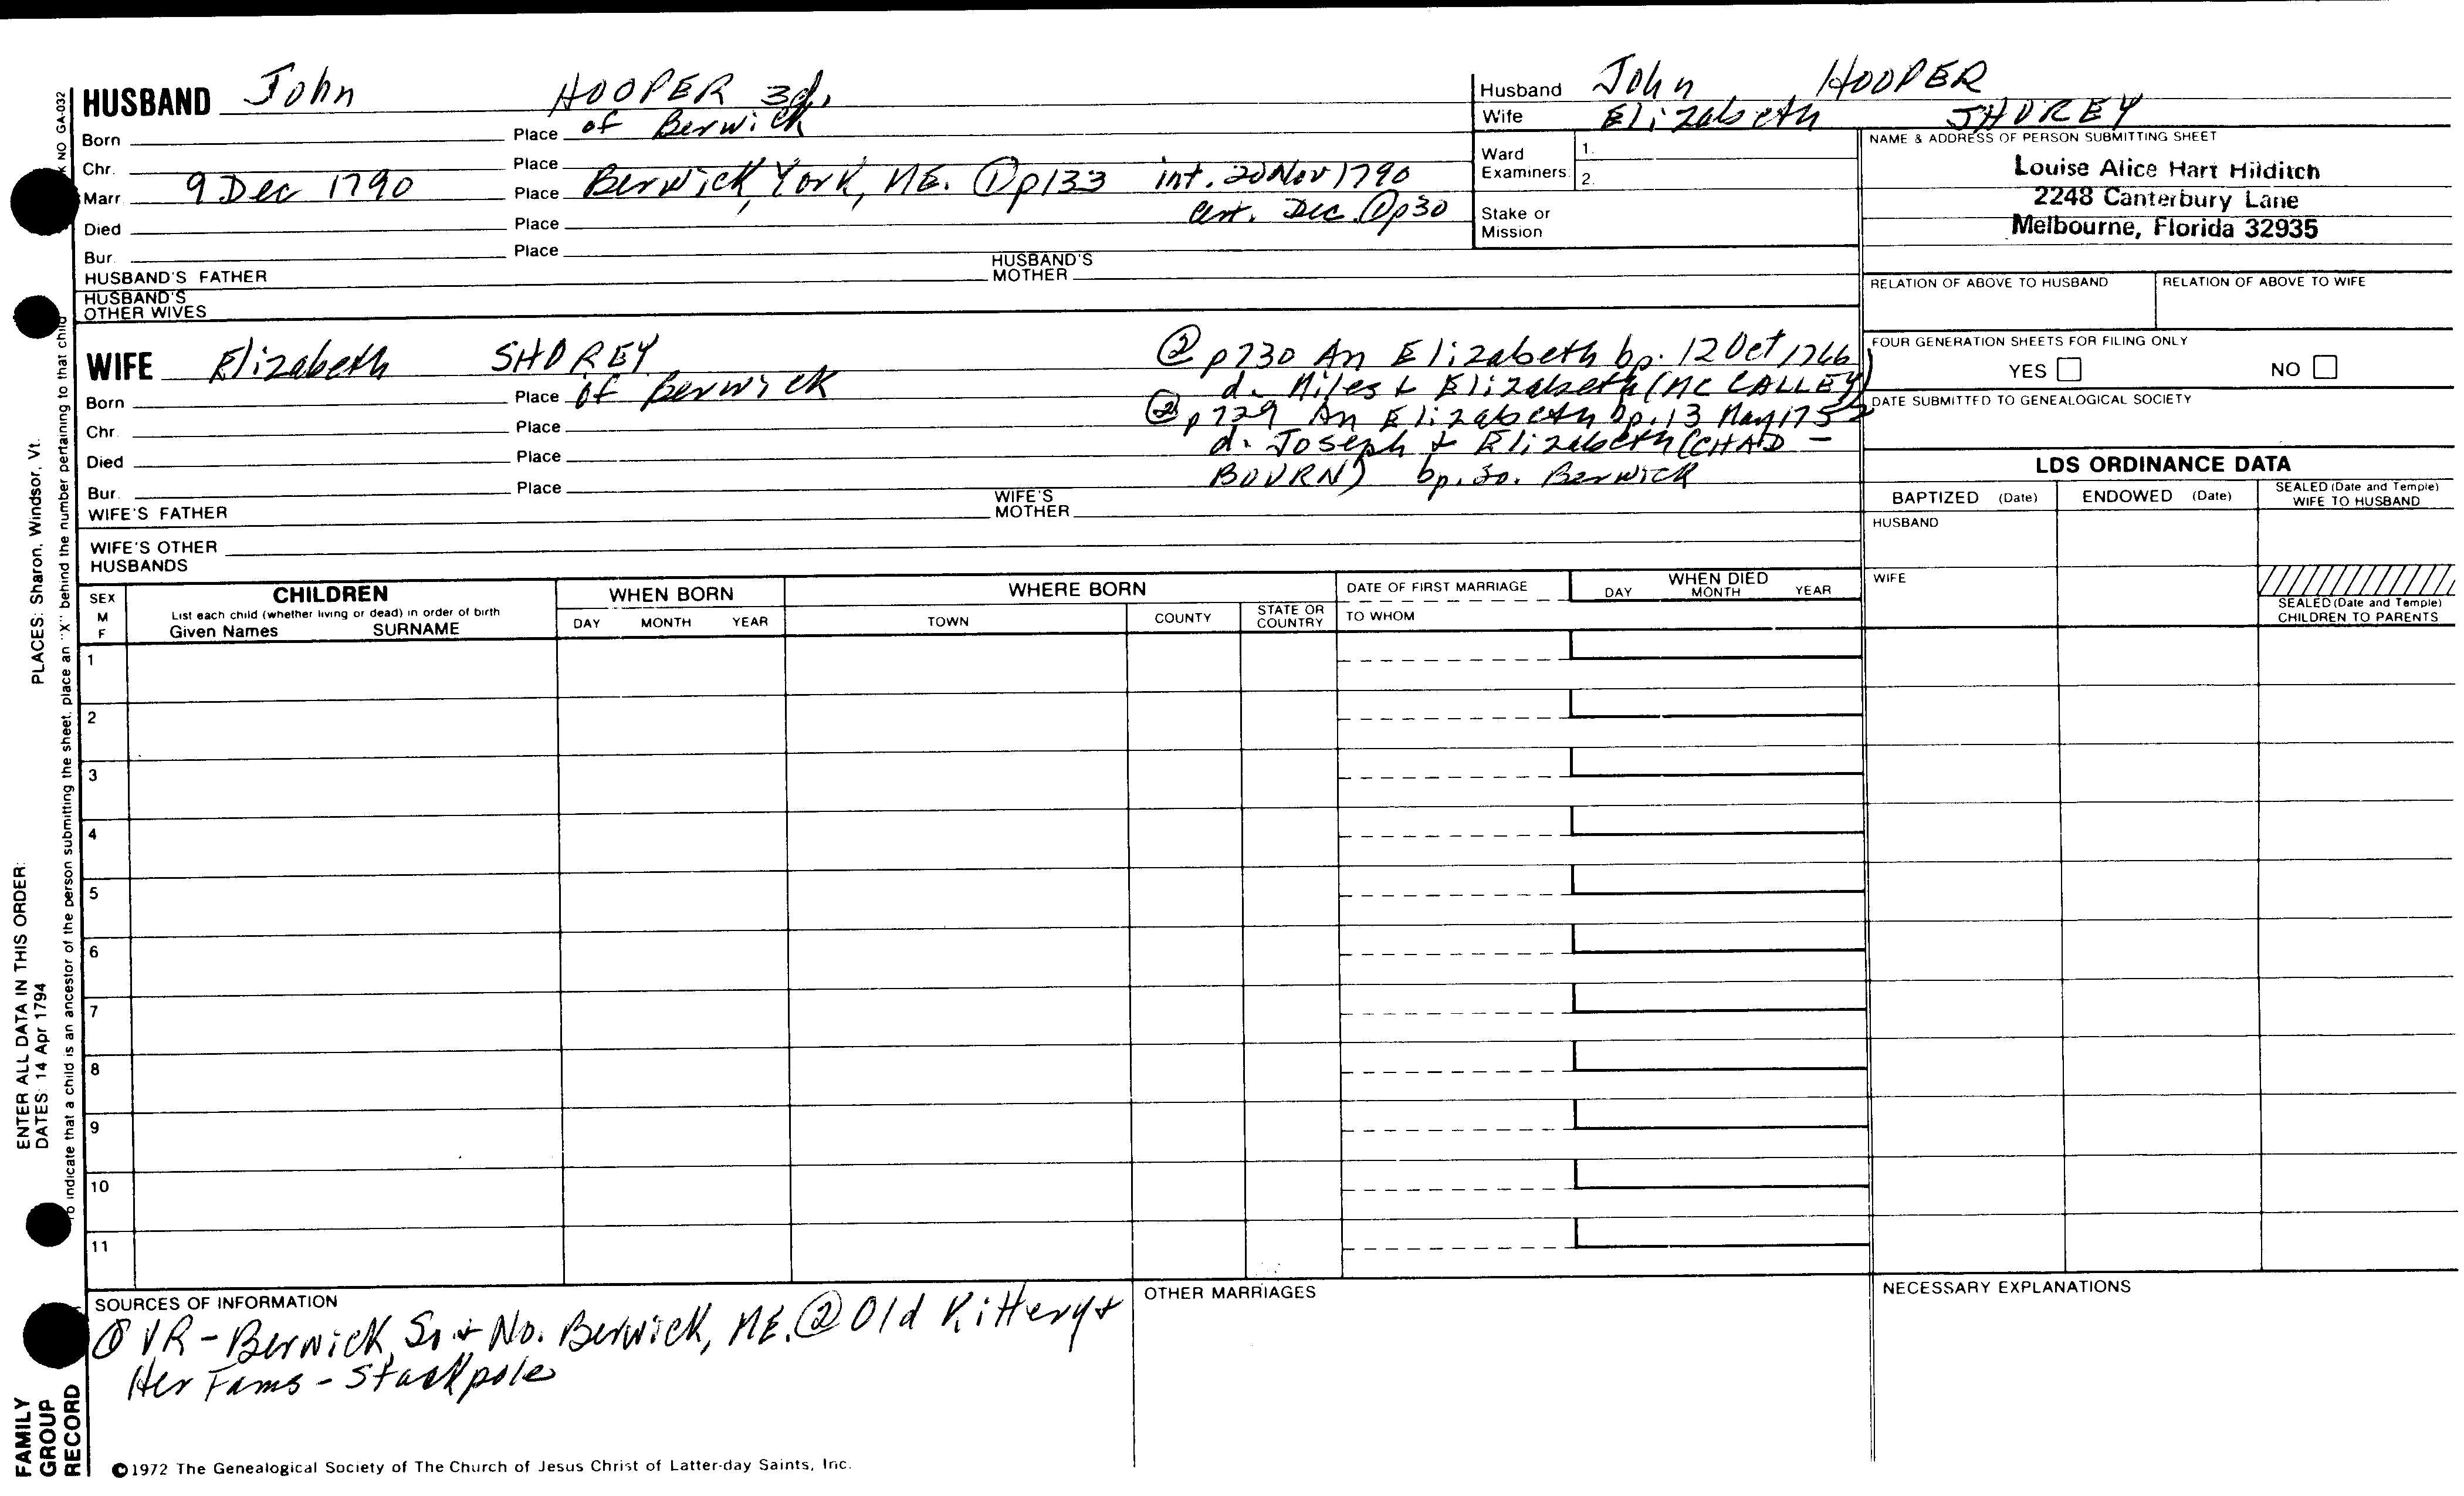 HUSBAND John HOOPER 3d.
Born Place of Berwick
Chr. Place
Marr. 9 Dec 1790 Place Berwick, York, ME. ① p133 int. 20 Nov 1790
cert. Dec ① p30
Died Place
Bur. Place
HUSBAND'S FATHER HUSBAND'S MOTHER
HUSBAND'S OTHER WIVES
Husband John HOOPER
Wife Elizabeth SHOREY
Ward Examiners 1.
2.
Stake or Mission
NAME & ADDRESS OF PERSON SUBMITTING SHEET
Louise Alice Hart Hilditch
2248 Canterbury Lane
Melbourne, Florida 32935
RELATION OF ABOVE TO HUSBAND RELATION OF ABOVE TO WIFE
FOUR GENERATION SHEETS FOR FILING ONLY
YES NO
DATE SUBMITTED TO GENEALOGICAL SOCIETY
WIFE Elizabeth SHOREY
Born Place of Berwick
Chr. Place
Died Place
Bur. Place
WIFE'S FATHER WIFE'S MOTHER
WIFE'S OTHER HUSBANDS
② p730 An Elizabeth bp. 12 Oct 1766
d. Miles & Elizabeth (MC CALLEY)
② p729 An Elizabeth bp. 13 May 175
d. Joseph & Elizabeth (CHAD-
BOURN) bp. So. Berwick
LDS ORDINANCE DATA
BAPTIZED (Date) ENDOWED (Date) SEALED (Date and Temple) WIFE TO HUSBAND
HUSBAND
WIFE
SEALED (Date and Temple) CHILDREN TO PARENTS
SEX M F
CHILDREN
List each child (whether living or dead) in order of birth
Given Names SURNAME
WHEN BORN
DAY MONTH YEAR
WHERE BORN
TOWN COUNTY STATE OR COUNTRY
DATE OF FIRST MARRIAGE
TO WHOM
WHEN DIED
DAY MONTH YEAR
1
2
3
4
5
6
7
8
9
10
11
SOURCES OF INFORMATION
① VR - Berwick, So. & No. Berwick, ME. ② Old Kittery &
Her Fams - Stackpole
OTHER MARRIAGES
NECESSARY EXPLANATIONS
©1972 The Genealogical Society of The Church of Jesus Christ of Latter-day Saints, Inc.
FAMILY
GROUP
RECORD
ENTER ALL DATA IN THIS ORDER:
DATES: 14 Apr 1794 PLACES: Sharon, Windsor, Vt.
To indicate that a child is an ancestor of the person submitting the sheet, place an "X" behind the number pertaining to that child
NO GA-032